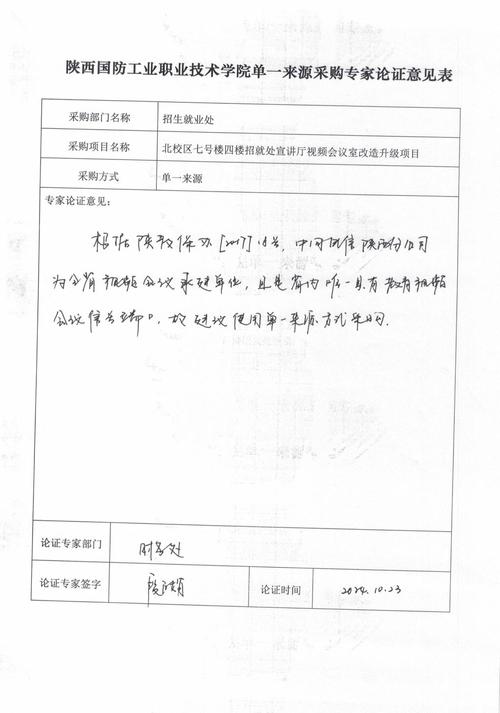 陕西国防工业职业技术学院单一来源采购专家论证意见表
采购部门名称 招生就业处
采购项目名称 北校区七号楼四楼招就处宣讲厅视频会议室改造升级项目
采购方式 单一来源
专家论证意见:
根据陕教保办[2017]18号,中国电信陕西分公司
为全省视频会议承建单位,且是省内唯一具有教育视频
会议信号端口,故建议使用单一来源方式采购.
论证专家部门 财务处
论证专家签字 论证时间 2024.10.23